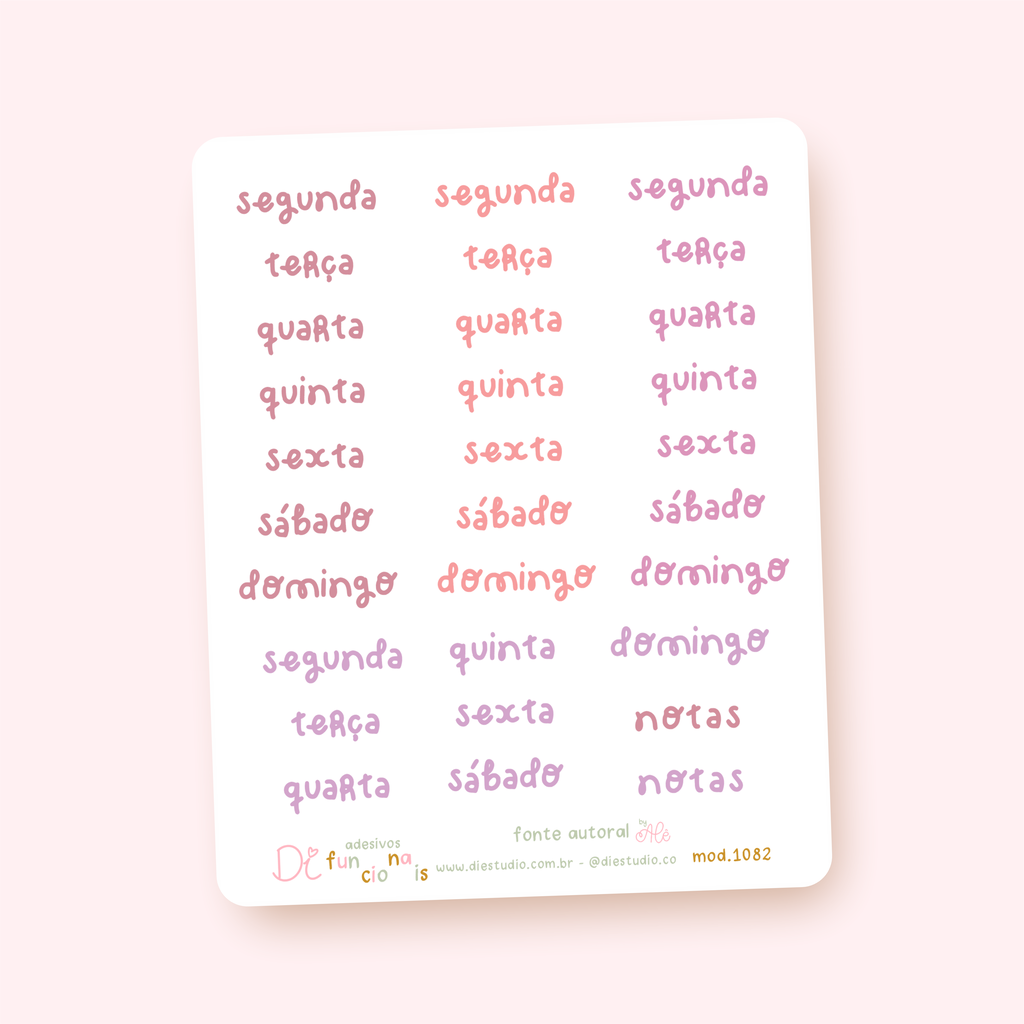 segunda segunda segunda
terça terça terça
quarta quarta quarta
quinta quinta quinta
sexta sexta sexta
sábado sábado sábado
domingo domingo domingo
segunda quinta domingo
terça sexta notas
quarta sábado notas
fonte autoral by Alê
Di adesivos funcionais www.diestudio.com.br - @diestudio.co mod.1082